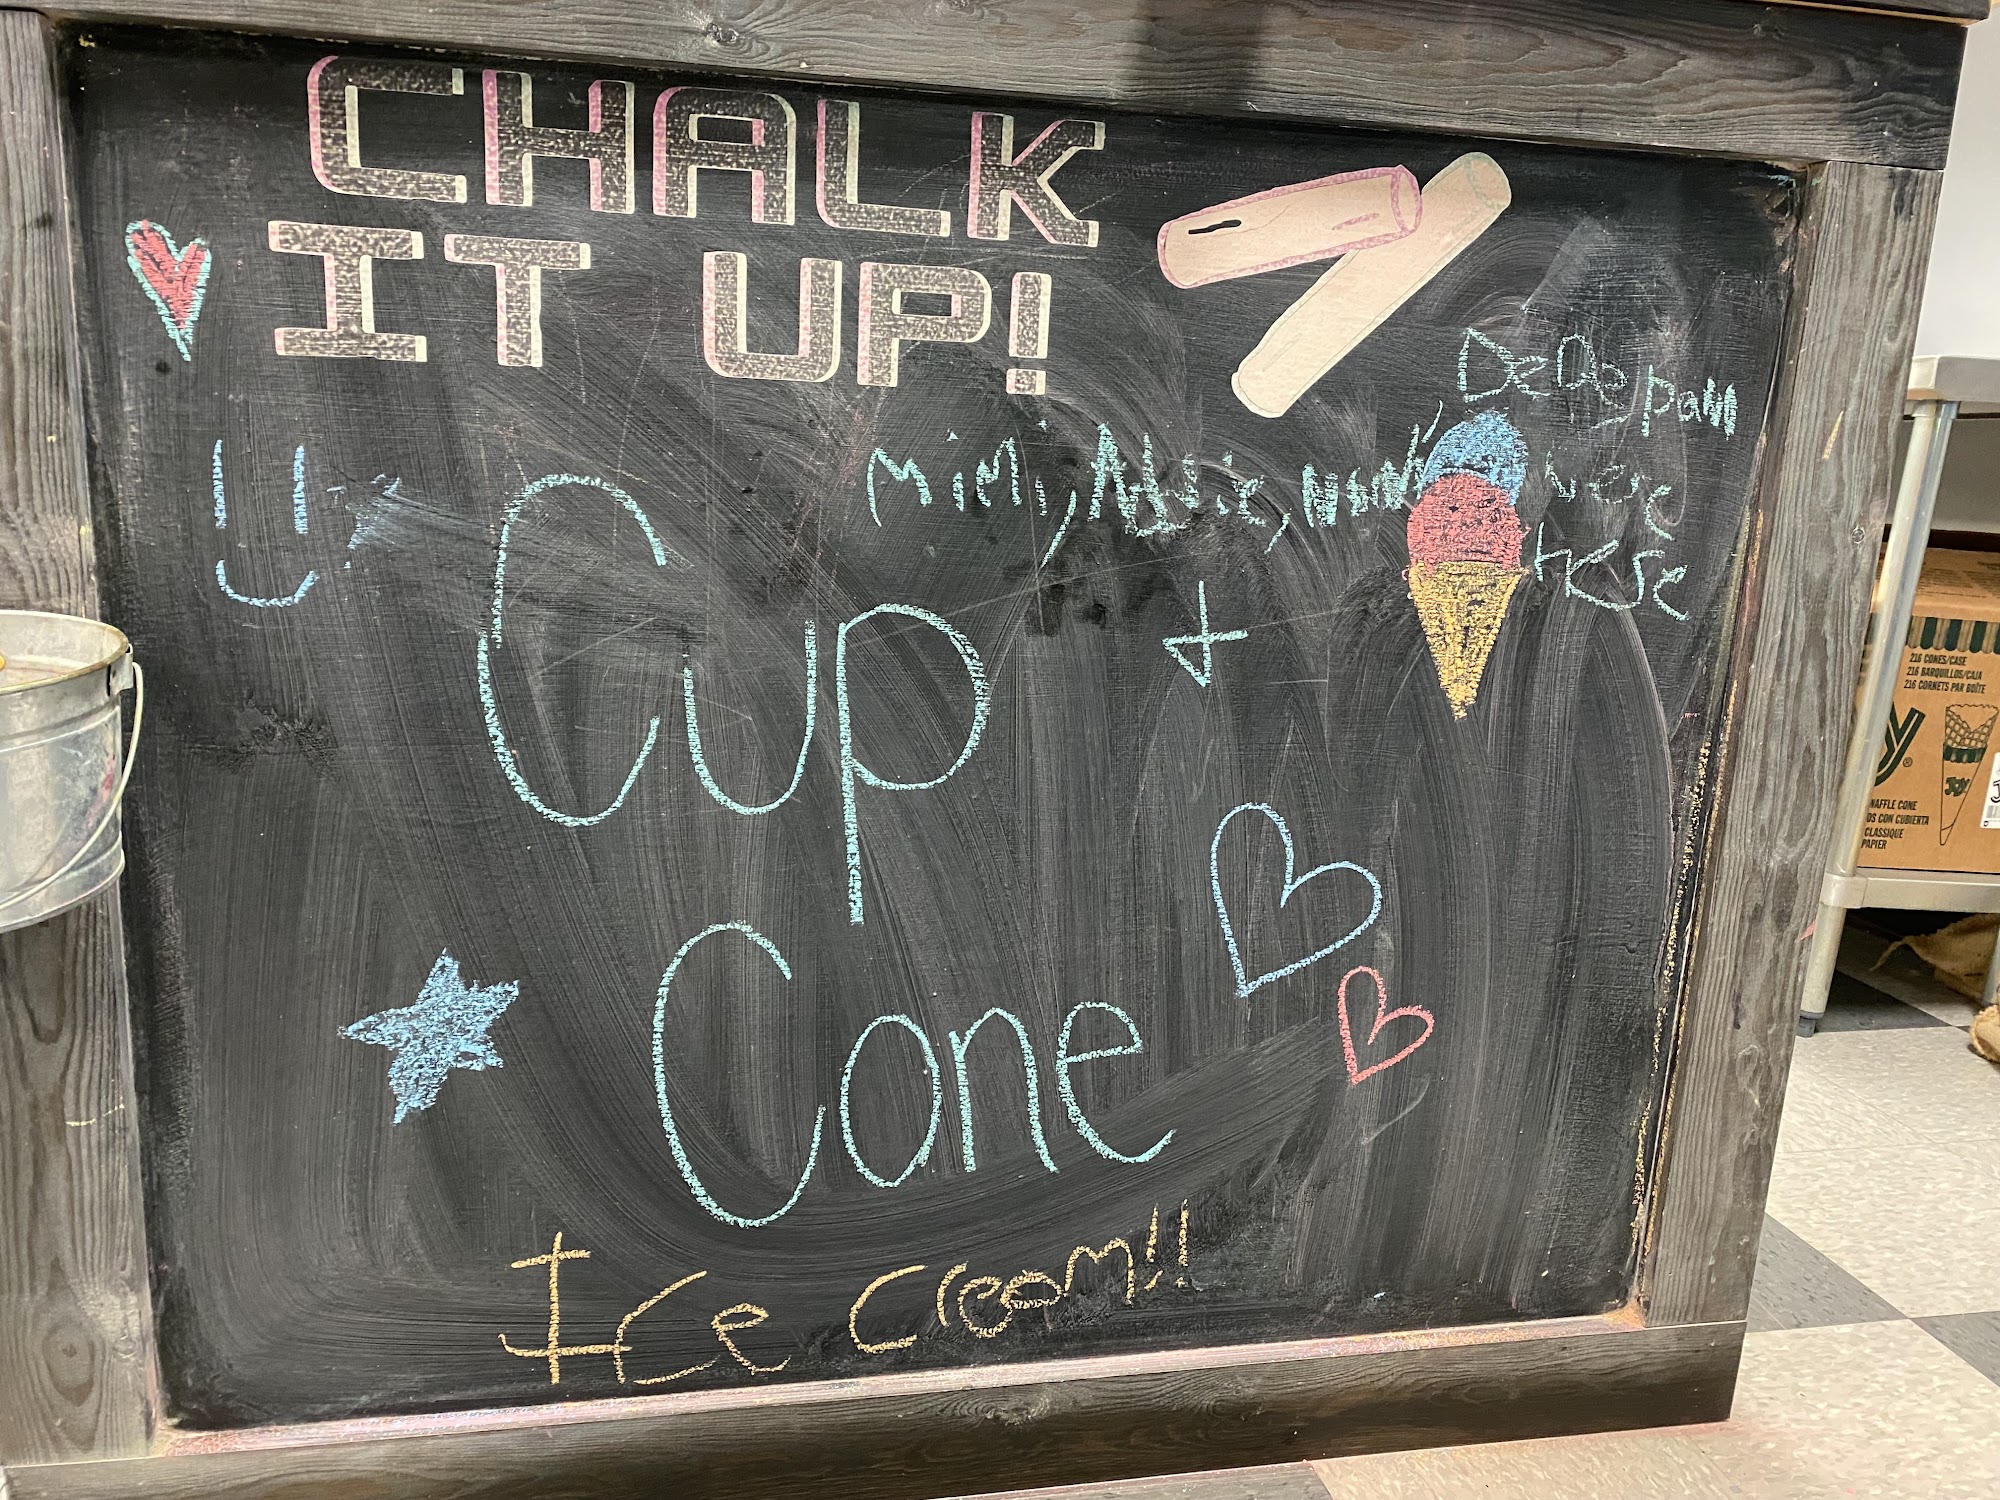 CHALK
IT UP!
Mimi,
were
Here
Cup +
Cone
Ice cream!!
216 CONES/CASE
216 BARQUILLOS/CAJA
216 CORNETS PAR BOÎTE
y®
JOY
WAFFLE CONE
OS CON CUBIERTA
CLASSIQUE
PAPIER